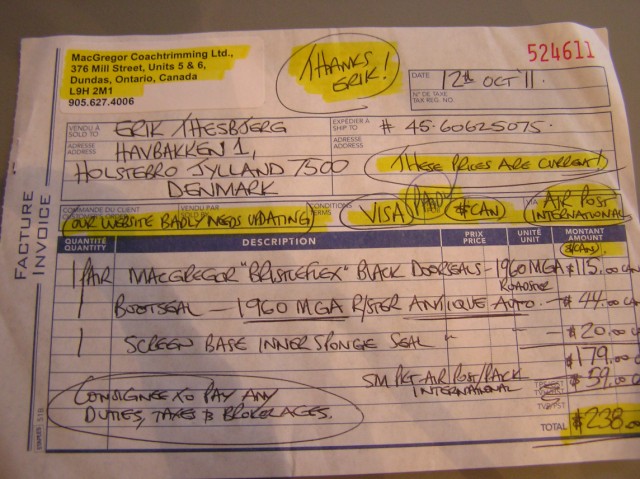 MacGregor Coachtrimming Ltd.,
376 Mill Street, Units 5 & 6,
Dundas, Ontario, Canada
L9H 2M1
905.627.4006
THANKS
ERIK!
524611
DATE 12th OCT '11
N° DE TAXE
TAX REG. NO.
VENDU À
SOLD TO
ERIK THESBJERG
ADRESSE
ADDRESS
HAVBAKKEN 1,
HOLSTEBRO JYLLAND 7500
DENMARK
EXPÉDIER À
SHIP TO
# 45-60625075.
ADRESSE
ADDRESS
THESE PRICES ARE CURRENT!
COMMANDE DU CLIENT
VENDU PAR
CONDITIONS
TERMS
VIA
OUR WEBSITE BADLY NEEDS UPDATING
VISA
PAID
$CAN
AIR POST
INTERNATIONAL
FACTURE
INVOICE
QUANTITÉ
QUANTITY
DESCRIPTION
PRIX
PRICE
UNITÉ
UNIT
MONTANT
AMOUNT
$CAN
1 PAIR MACGREGOR "BRISTLEFLEX" BLACK DOORSEALS - 1960 MGA ROADSTER $115.00
1 BOOTSEAL - 1960 MGA R/STER ANTIQUE AUTO. - $44.00
1 SCREEN BASE INNER SPONGE SEAL " " - $20.00
$179.00
SM PKT-AIR POST/PACK
INTERNATIONAL
$59.00
CONSIGNEE TO PAY ANY
DUTIES, TAXES & BROKERAGES.
TOTAL $238.00